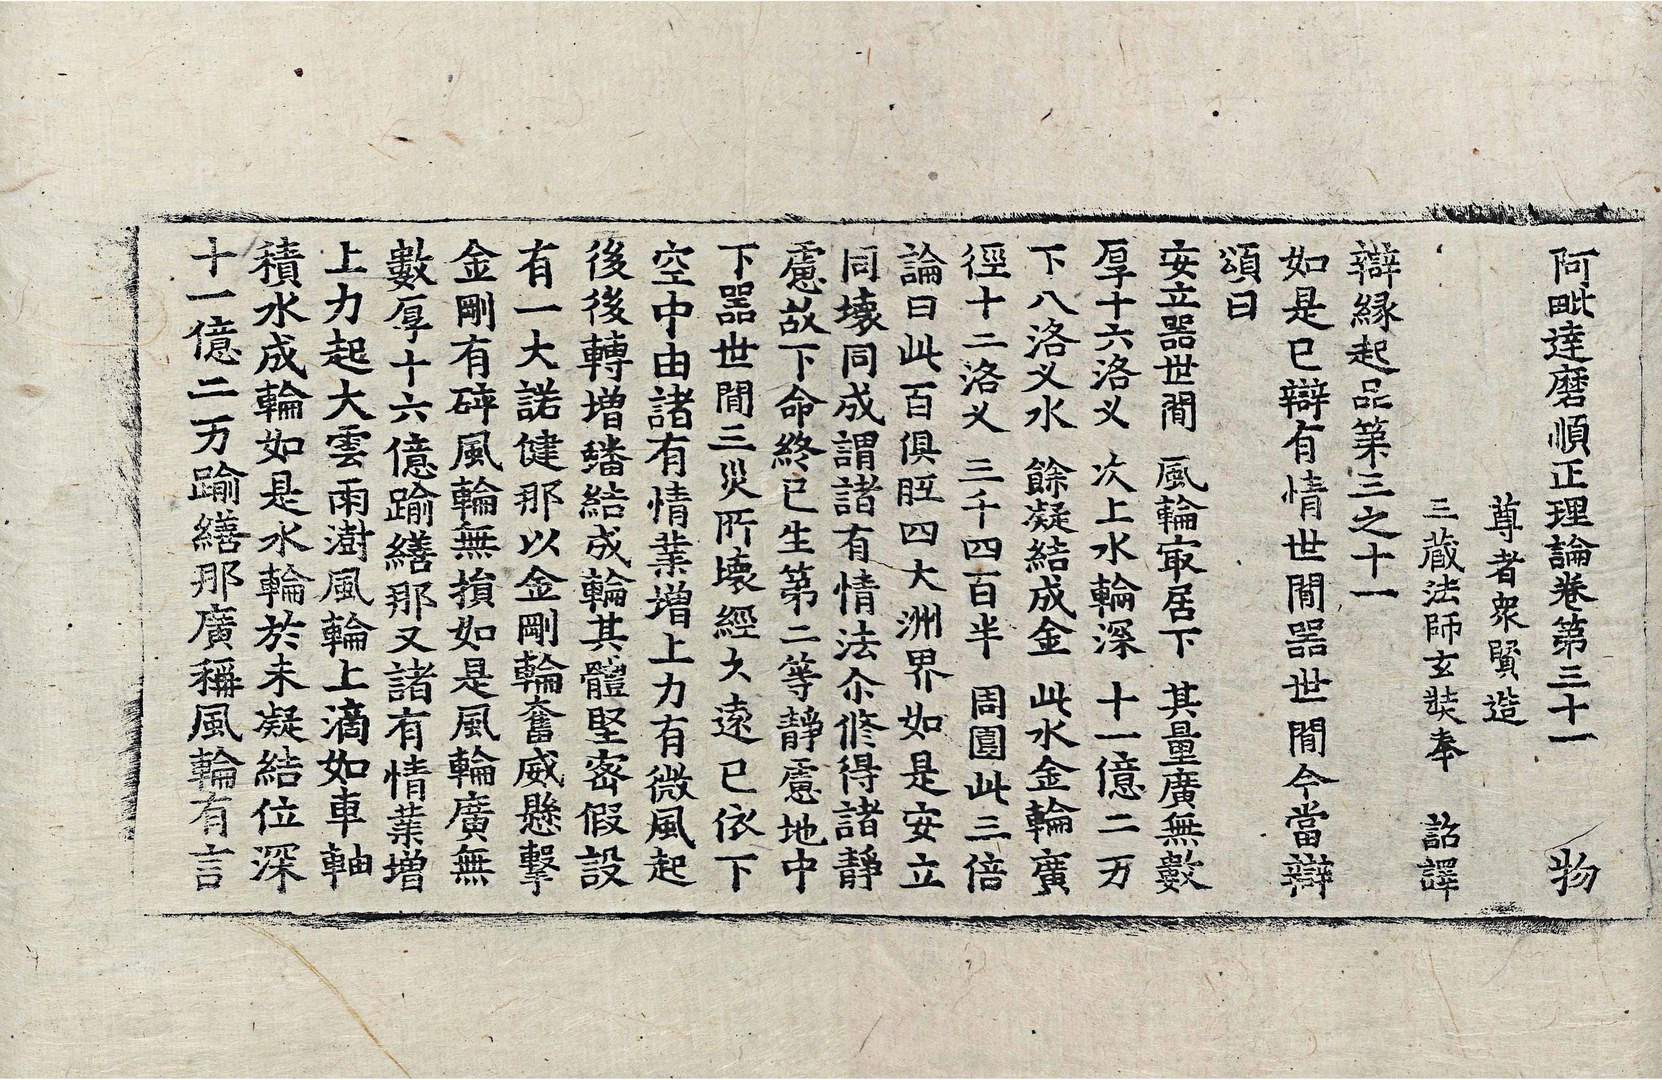 阿毗達磨順正理論卷第三十一 物
尊者衆賢造
三藏法師玄奘奉 詔譯
辯緣起品第三之十一
如是已辯有情世間器世間今當辯
頌曰
安立器世間 風輪㝡居下 其量廣無數
厚十六洛叉 次上水輪深 十一億二万
下八洛叉水 餘凝結成金 此水金輪廣
徑十二洛叉 三千四百半 周圍此三倍
論曰此百俱胝四大洲界如是安立
同壞同成謂諸有情法尒修得諸靜
慮故下命終已生第二等靜慮地中
下器世間三災所壞經久遠已依下
空中由諸有情業增上力有微風起
後後轉增蟠結成輪其體堅密假設
有一大諾健那以金剛輪奮威懸擊
金剛有碎風輪無損如是風輪廣無
數厚十六億踰繕那又諸有情業增
上力起大雲雨澍風輪上滴如車軸
積水成輪如是水輪於未凝結位深
十一億二万踰繕那廣稱風輪有言